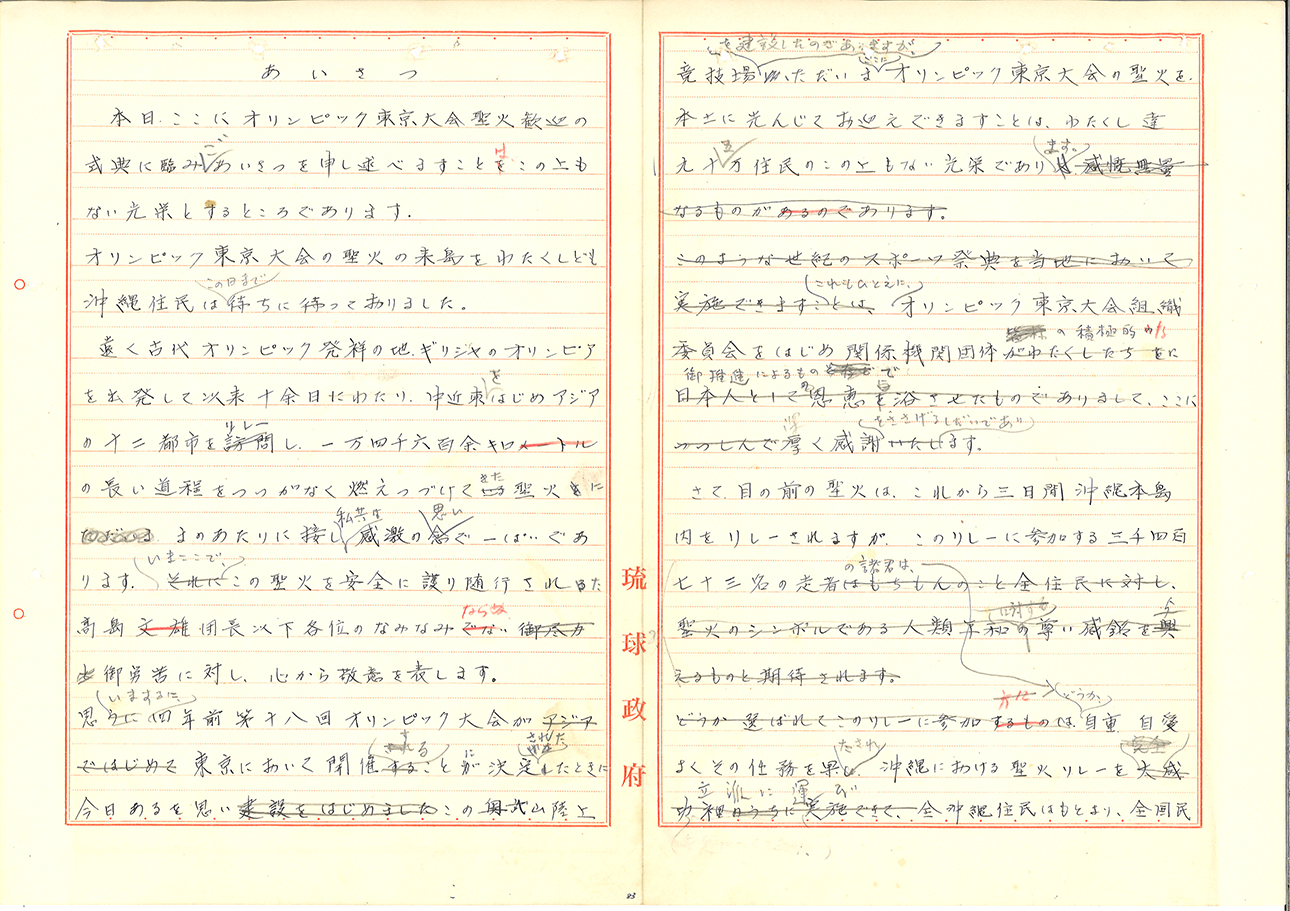 あいさつ
本日、ここにオリンピック東京大会聖火歓迎の
式典に臨みごあいさつを申し述べますことはをこの上も
ない光栄とするところであります。
オリンピック東京大会の聖火の来島をわたくしども
この日まで
沖縄住民は待ちに待っておりました。
遠く古代オリンピック発祥の地、ギリシヤのオリンピア
を
を出発して以来十余日にわたり、中近東はじめアジア
リレー
の十二都市を訪問し、一万四千六百余キロメートル
きた
の長い道程をつつがなく燃えつづけて聖火に
私共は 思い
まのあたりに接し感激の念で一ぱいであ
いまここで、
ります。それにこの聖火を安全に護り随行された
ならぬ
高島文雄団長以下各位のなみなみでない御尽力
御労苦に対し、心から敬意を表します。
いまするに、
思うに四年前第十八回オリンピック大会がアジア
する に された
ではじめて東京において開催することが決定したときに
今日あるを思い建設をはじめましたこの奥武山陸上
琉球政府
を建設したのでありますが、
ここに
競技場がただいまオリンピック東京大会の聖火を
本土に先んじてお迎えできますことは、わたくし達
九十五万住民のこの上もない光栄であります。感慨無量
なるものがあるのであります。
このような世紀のスポーツ祭典を当地において
これもひとえに、
実施できますことは、オリンピック東京大会組織
の積極的
委員会をはじめ関係機関団体がわたくしたちを
御推進によるもので
日本人としての恩恵に浴させたものでありまして、ここに
深 をささげるしだいであり
つつしんで厚く感謝いたします。
さて、目の前の聖火は、これから三日間沖縄本島
内をリレーされますが、このリレーに参加する三千四百
の諸君は、
七十三名の走者はもちろんのこと全住民に対し、
に対する
聖火のシンボルである人類平和の尊い感銘を興
えるものと期待されます。
方に どうか、
どうか選ばれてこのリレーに参加するものは、自重自愛
たされ
よくその任務を果し、沖縄における聖火リレーを大成
立派に運び
功裡のうちに実施できて、全沖縄住民はもとより、全国民